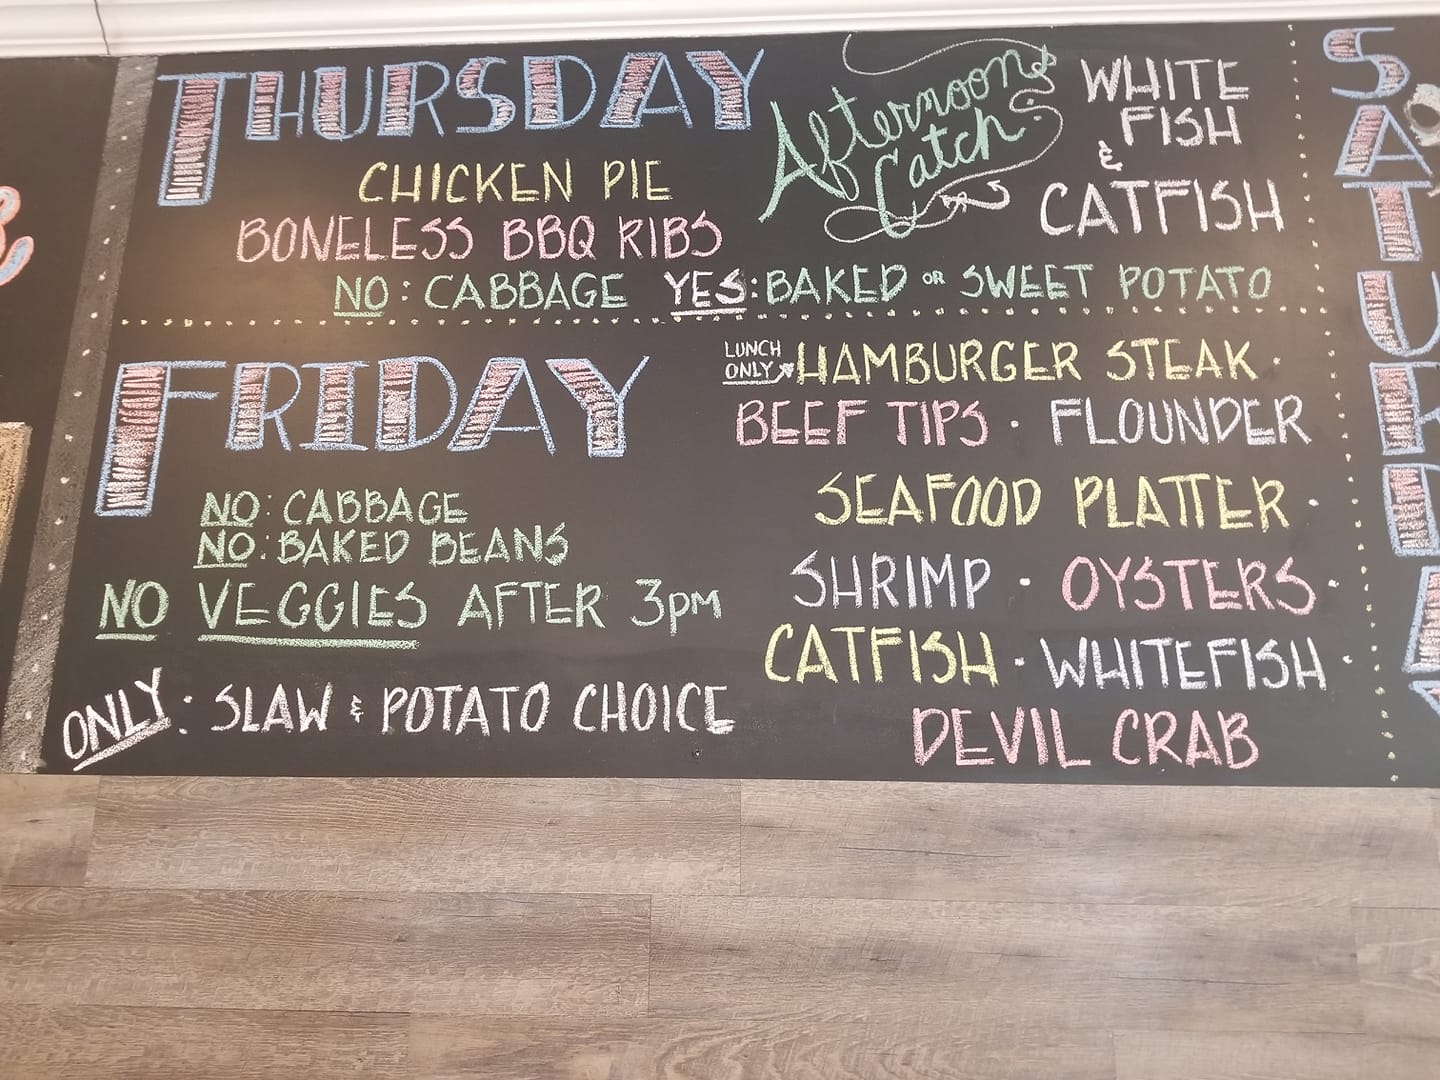 THURSDAY
CHICKEN PIE
BONELESS BBQ RIBS
Afternoon
Catch
WHITE
FISH
&
CATFISH
NO: CABBAGE YES: BAKED OR SWEET POTATO
FRIDAY
LUNCH
ONLY
HAMBURGER STEAK ·
BEEF TIPS · FLOUNDER
SEAFOOD PLATTER ·
SHRIMP · OYSTERS ·
CATFISH · WHITEFISH ·
DEVIL CRAB
NO: CABBAGE
NO: BAKED BEANS
NO VEGGIES AFTER 3pm
ONLY: SLAW & POTATO CHOICE
SATURDAY